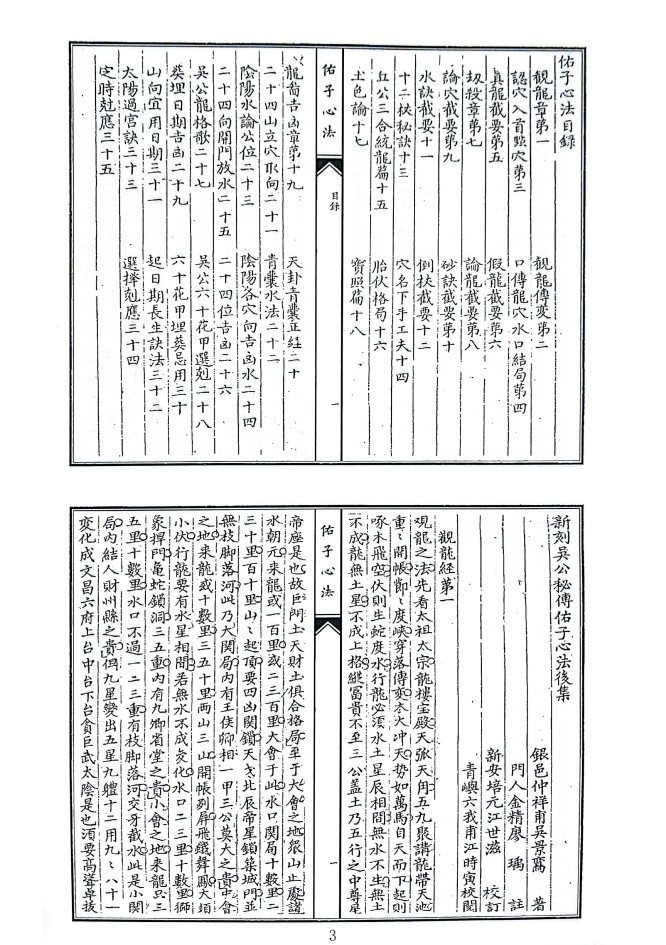 佑子心法目錄
觀龍章第一　觀龍傳変第二
認穴入首點穴第三　口傳龍穴水口結局第四
真龍截要第五　假龍截要第六
刼殺章第七　論龍截要第八
論穴截要第九　砂訣截要第十
水訣截要十一　倒杖截要十二
十二杖秘訣十三　穴名下手工夫十四
丘公三合統龍篇十五　胎伏格局十六
土色論十七　寳照篇十八
佑子心法
目錄
一
龍啚吉凶章第十九　天卦青囊正経二十
二十四山立穴取向二十一　青囊水法二十二
陰陽水論公位二十三　陰陽各穴向吉凶水二十四
二十四向開門放水二十五　二十四位吉凶二十六
吳公龍格歌二十七　吳公六十花甲選剋二十八
葬埋日期吉凶二十九　六十花甲埋葬忌用三十
山向宜用日期三十一　起日期長生訣法三十二
太陽過宮訣三十三　選擇剋應三十四
定時尅應三十五
新刻吳公秘傳佑子心法後集
銀邑仲祥甫吳景鸞　著
門人金精廖　瑀　註
新安培元江世滋　校訂
青嶼六我甫江時寅校閱
觀龍経第一
观龍之法先看太祖太宗龍樓宝殿天弧天角五九聚講龍帶天池
重〻開帳節〻度峽穿落傳变木火冲天势如萬馬自天而下起則
啄木飛空伏則生蛇度水行龍必須水土星辰相間無水不生無土
不成龍無土星不成上格縱冨貴不至三公蓋土乃五行之中尊星
佑子心法
一
帝座是也故巨門土天財土俱合格局至于大會之地衆山止處諸
水朝元来龍或一百里或二三百里大會于此水口関局十數里二
三十里百十里山〻起頂要四凶関鎖天戈北辰帝星鎖築城門並
無枝脚落河此乃大関局内有王侯卿相一甲三公莫大之貴中會
之地来龍或十數里三五十里两山三山開帳列屏飛鵝舞鳳大頓
小伏行龍要有水星相間若無水不成変化水口二三里十數里獅
象捍門亀蛇鎖洞三五重内有九卿省堂之貴小會之地来龍只三
五里十數里水口不過一二三重有枝脚落河交牙截水此是小関
局内結人財州縣之貴但九星變出五星九軆十二用九〻八十一
变化成文昌六府上台中台下台貪巨武太陰是也須要高聳卓拔
3